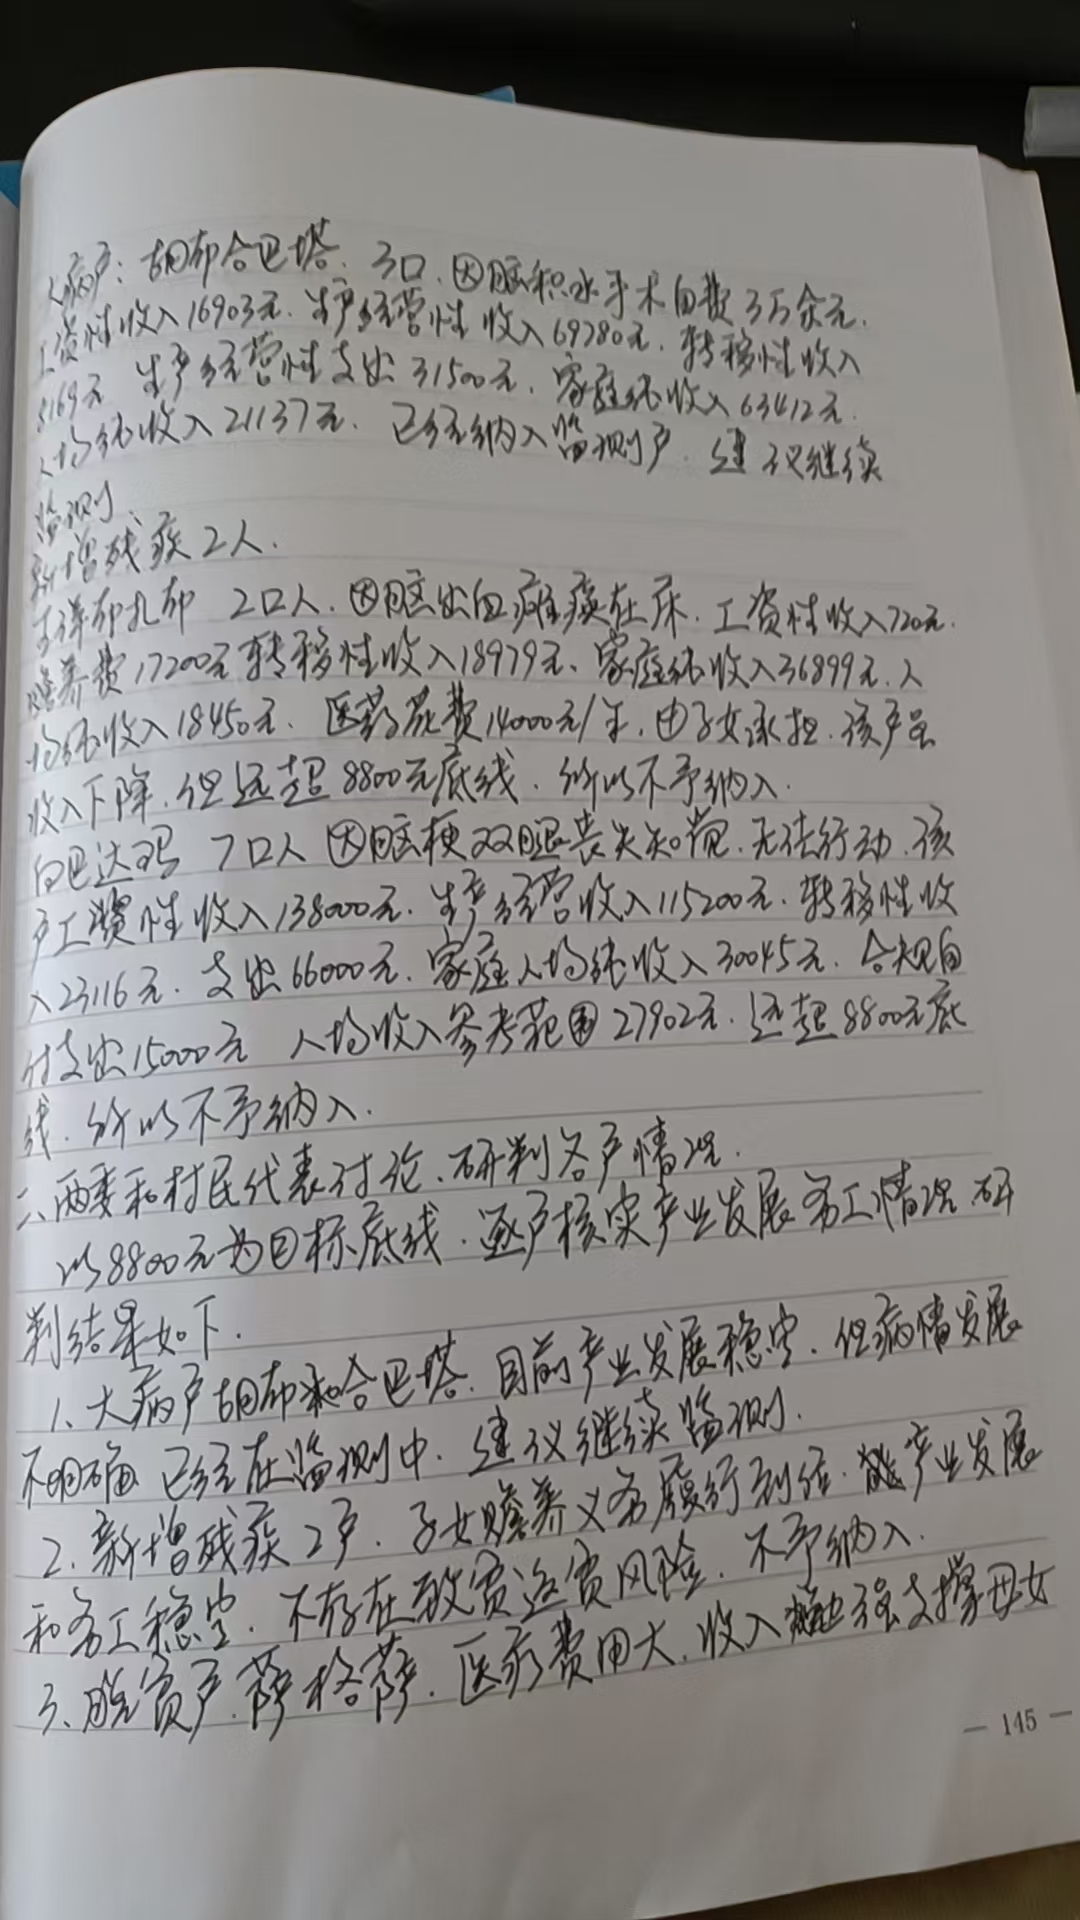 病户：胡布合巴塔、3口、因脑积水手术自费3万余元.
工资性收入16903元. 生产经营性收入69780元. 转移性收入
8169元 生产经营性支出31500元. 家庭纯收入63412元.
人均纯收入21137元. 已经纳入监测户. 建议继续
监测.
新增残疾2人.
布扎布 2口人. 因脑出血瘫痪在床. 工资性收入720元.
赡养费17200元转移性收入18979元、家庭纯收入36899元. 人
均纯收入18450元. 医药花费14000元/年. 由子女承担. 该户虽
收入下降. 但远超8800元底线. 所以不予纳入.
白巴达玛 7口人 因脑梗双腿丧失知觉. 无法行动. 该
户工资性收入138000元. 生产经营收入115200元. 转移性收
入23116元. 支出66000元. 家庭人均纯收入30045元. 合规自
付支出15000元 人均收入参考范围27902元. 远超8800元底
线. 所以不予纳入.
二、两委和村民代表讨论、研判各户情况.
以8800元为目标底线. 逐户核实产业发展务工情况. 研
判结果如下.
1、大病户胡布和合巴塔. 目前产业发展稳定. 但病情发展
不明确 已经在监测中. 建议继续监测.
2、新增残疾2户. 子女赡养义务履行到位. 产业发展
和务工稳定. 不存在致贫返贫风险. 不予纳入.
3、脱贫户. 萨格萨. 医疗费用大. 收入勉强支撑母女
— 145 —